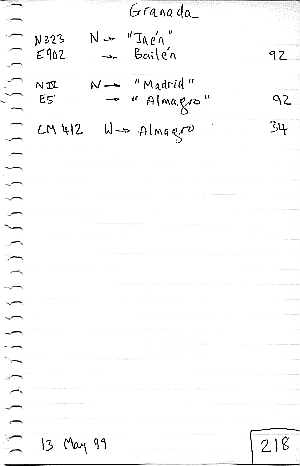 Granada
N323 N → "Jaén"
E902 → Bailén 92
N IV N → "Madrid"
E5 → "Almagro" 92
CM 412 W → Almagro 34
13 May 99 218